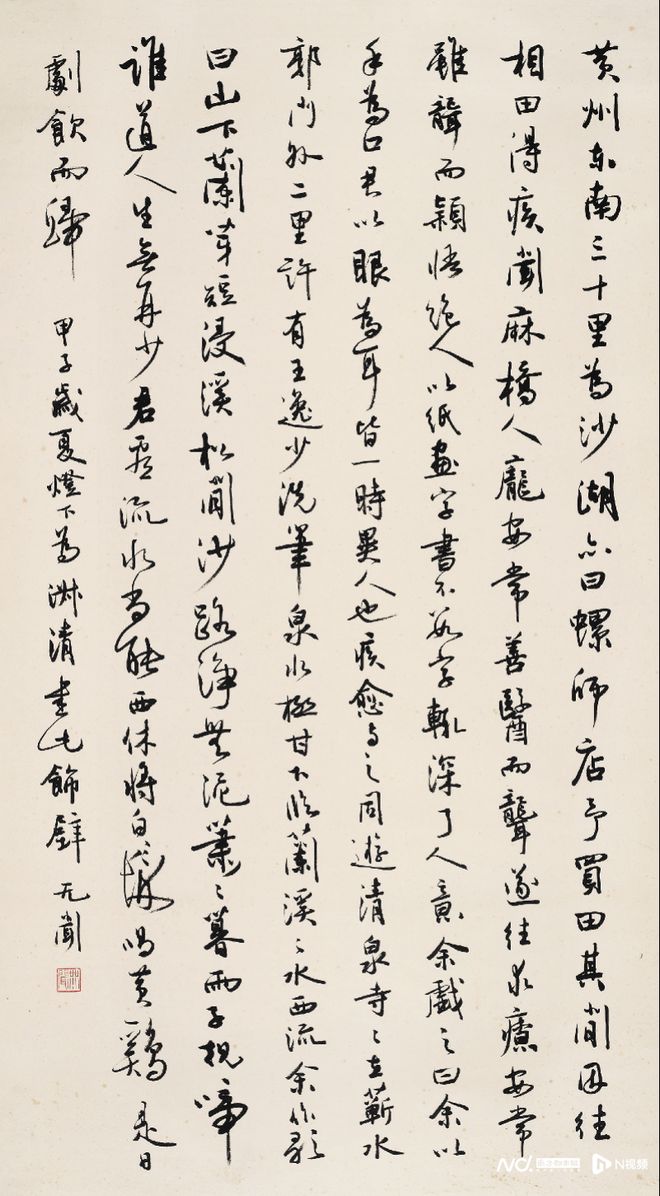 黃州東南三十里為沙湖亦曰螺師店予買田其間因往
相田得疾聞麻橋人龐安常善醫而聾遂往求療安常
雖聾而穎悟絕人以紙畫字書不數字輒深了人意余戲之曰余以
手為口君以眼為耳皆一時異人也疾愈與之同遊清泉寺〻在蘄水
郭門外二里許有王逸少洗筆泉水極甘下臨蘭溪〻水西流余作歌
曰山下蘭芽短浸溪松間沙路淨無泥蕭〻暮雨子規啼
誰道人生無再少君看流水尚能西休將白髮唱黃雞是日
劇飲而歸 甲子歲夏燈下為淑清書此飾壁 无聞
N视频